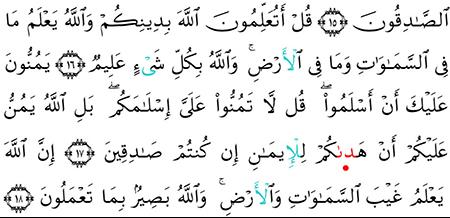 ٱلصَّـٰدِقُونَ ﴿١٥﴾ قُلْ أَتُعَلِّمُونَ ٱللَّهَ بِدِينِكُمْ وَٱللَّهُ يَعْلَمُ مَا
فِى ٱلسَّمَـٰوَٰتِ وَمَا فِى ٱلْأَرْضِ ۚ وَٱللَّهُ بِكُلِّ شَىْءٍ عَلِيمٌ ﴿١٦﴾ يَمُنُّونَ
عَلَيْكَ أَنْ أَسْلَمُوا۟ ۖ قُل لَّا تَمُنُّوا۟ عَلَىَّ إِسْلَـٰمَكُم ۖ بَلِ ٱللَّهُ يَمُنُّ
عَلَيْكُمْ أَنْ هَدَىٰكُمْ لِلْإِيمَـٰنِ إِن كُنتُمْ صَـٰدِقِينَ ﴿١٧﴾ إِنَّ ٱللَّهَ
يَعْلَمُ غَيْبَ ٱلسَّمَـٰوَٰتِ وَٱلْأَرْضِ ۚ وَٱللَّهُ بَصِيرٌۢ بِمَا تَعْمَلُونَ ﴿١٨﴾